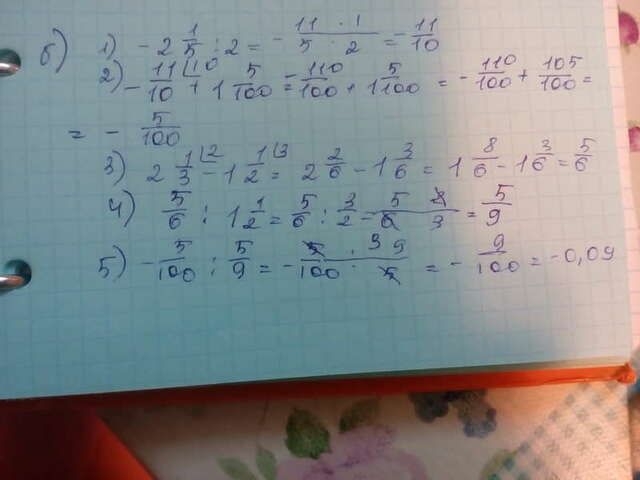 б) 1) - 2 1/5 : 2 = - 11 · 1 / 5 · 2 = - 11/10
2) - 11/10 \10 + 1 5/100 = - 110/100 + 1 5/100 = - 110/100 + 105/100 =
= - 5/100
3) 2 1/3 \2 - 1 1/2 \3 = 2 2/6 - 1 3/6 = 1 8/6 - 1 3/6 = 5/6
4) 5/6 : 1 1/2 = 5/6 : 3/2 = 5 · 2 / 6 · 3 = 5/9
5) - 5/100 : 5/9 = - 5 · 9 / 100 · 5 = - 9/100 = - 0,09